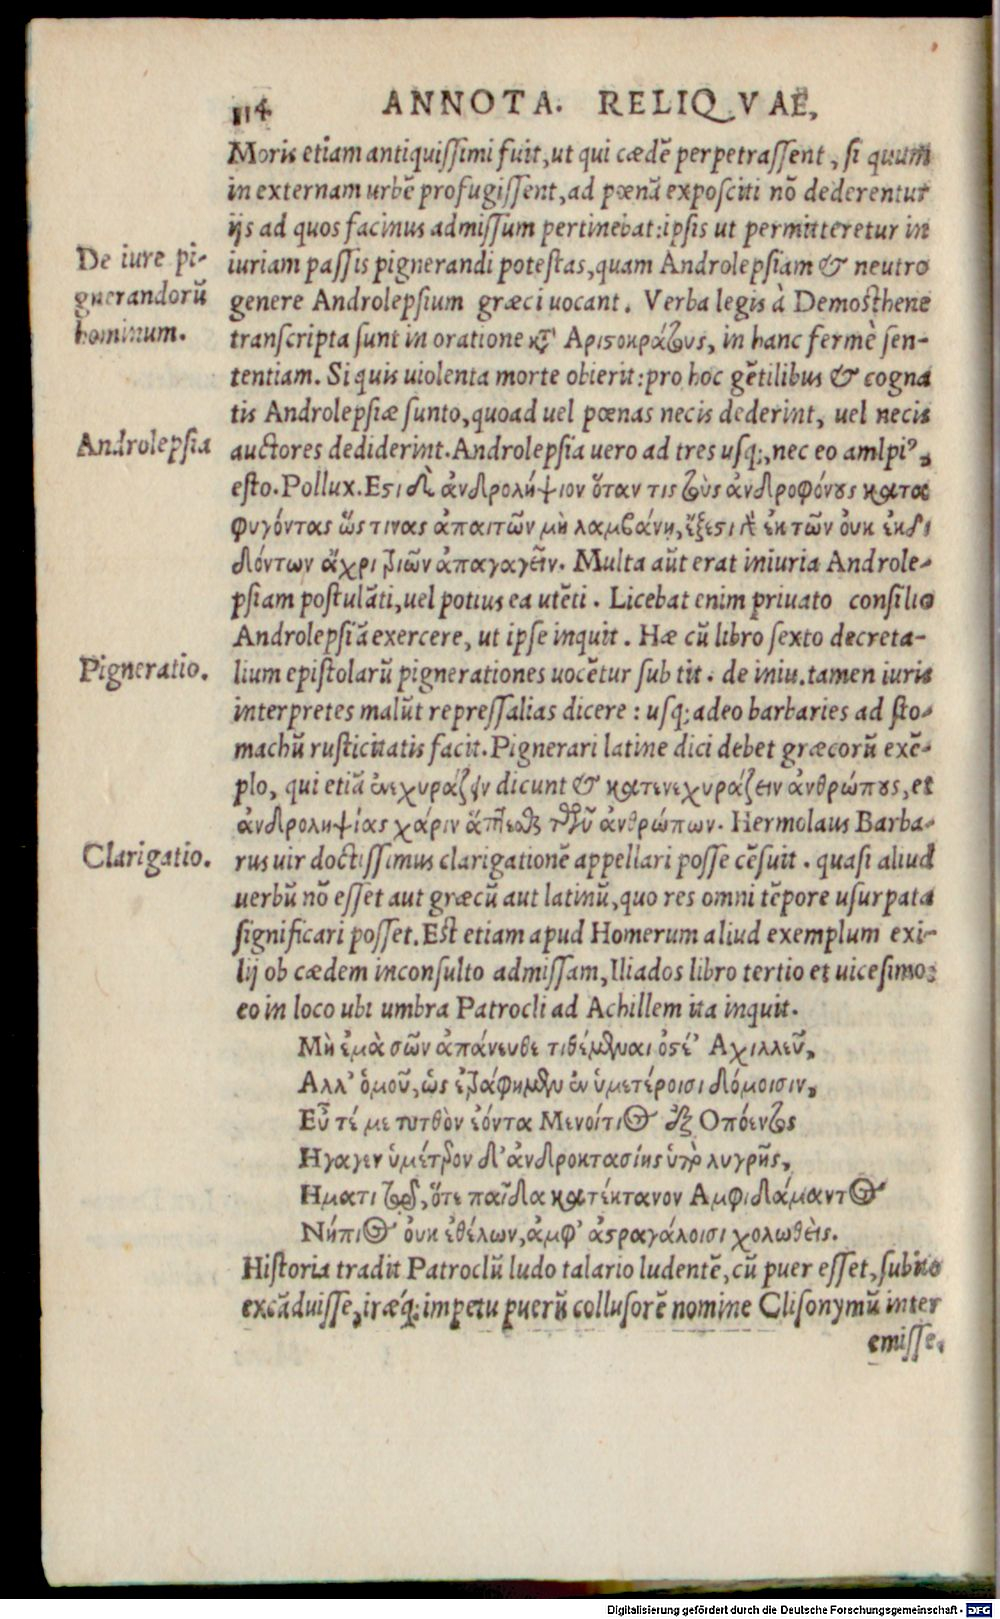 114 ANNOTA. RELIQVAE,
Moris etiam antiquissimi fuit, ut qui cædē perpetrassent, si quum
in externam urbē profugissent, ad pœnā exposciti nō dederentur
ijs ad quos facinus admissum pertinebat: ipsis ut permitteretur in
De iure pi-
gnerandorū
hominum.
iuriam passis pignerandi potestas, quam Androlepsiam & neutro
genere Androlepsium græci uocant. Verba legis à Demosthene
transcripta sunt in oratione κτ' Αριστοκράτους, in hanc fermè sen-
tentiam. Si quis uiolenta morte obierit: pro hoc gētilibus & cogna
tis Androlepsiæ sunto, quoad uel pœnas necis dederint, uel necis
Androlepsia
auctores dediderint. Androlepsia uero ad tres usq;, nec eo amlpiꝰ,
esto. Pollux. Εστι δὲ ἀνδρολήψιον ὅταν τις τοὺς ἀνδροφόνους κατα
φυγόντας ὥς τινας ἀπαιτῶν μὴ λαμβάνη, ἔξεστι δὲ ἐκ τῶν ὀυκ ἐκδι
δόντων ἄχρι τριῶν ἀπαγαγεῖν. Multa aūt erat iniuria Androle-
psiam postulāti, uel potius ea utēti. Licebat enim priuato consilio
Androlepsiā exercere, ut ipse inquit. Hæ cū libro sexto decreta-
Pigneratio.
lium epistolarū pignerationes uocētur sub tit. de iniu. tamen iuris
interpretes malūt repressalias dicere: usq; adeo barbaries ad sto-
machū rusticitatis facit. Pignerari latine dici debet græcorū exē-
plo, qui etiā ἐνεχυράζειν dicunt & κατενεχυράζειν ἀνθρώπους, et
ἀνδροληψίας χάριν ἅπτεσθαι τῶν ἀνθρώπων. Hermolaus Barba-
Clarigatio.
rus uir doctissimus clarigationē appellari posse cēsuit. quasi aliud
uerbū nō esset aut græcū aut latinū, quo res omni tēpore usurpata
significari posset. Est etiam apud Homerum aliud exemplum exi-
lij ob cædem inconsulto admissam, Iliados libro tertio et uicesimo:
eo in loco ubi umbra Patrocli ad Achillem ita inquit.
Μὴ ἐμὰ σῶν ἀπάνευθε τιθέμεναι ὀστέ' Αχιλλεῦ,
Αλλ' ὁμοῦ, ὡς ἐτράφημεν ἐν ὑμετέροισι δόμοισιν,
Εὖτέ με τυτθὸν ἐόντα Μενοίτιος ἐξ Οπόεντος
Ηγαγεν ὑμέτερον δ' ἀνδροκτασίης ὑπὸ λυγρῆς,
Ηματι τῷ, ὅτε παῖδα κατέκτανον Αμφιδάμαντος
Νήπιος ὀυκ ἐθέλων, ἀμφ' ἀστραγάλοισι χολωθεὶς.
Historia tradit Patroclū ludo talario ludentē, cū puer esset, subito
excāduisse, iræq́; impetu puerū collusorē nomine Clisonymū inter
emisse.
Digitalisierung gefördert durch die Deutsche Forschungsgemeinschaft - DFG